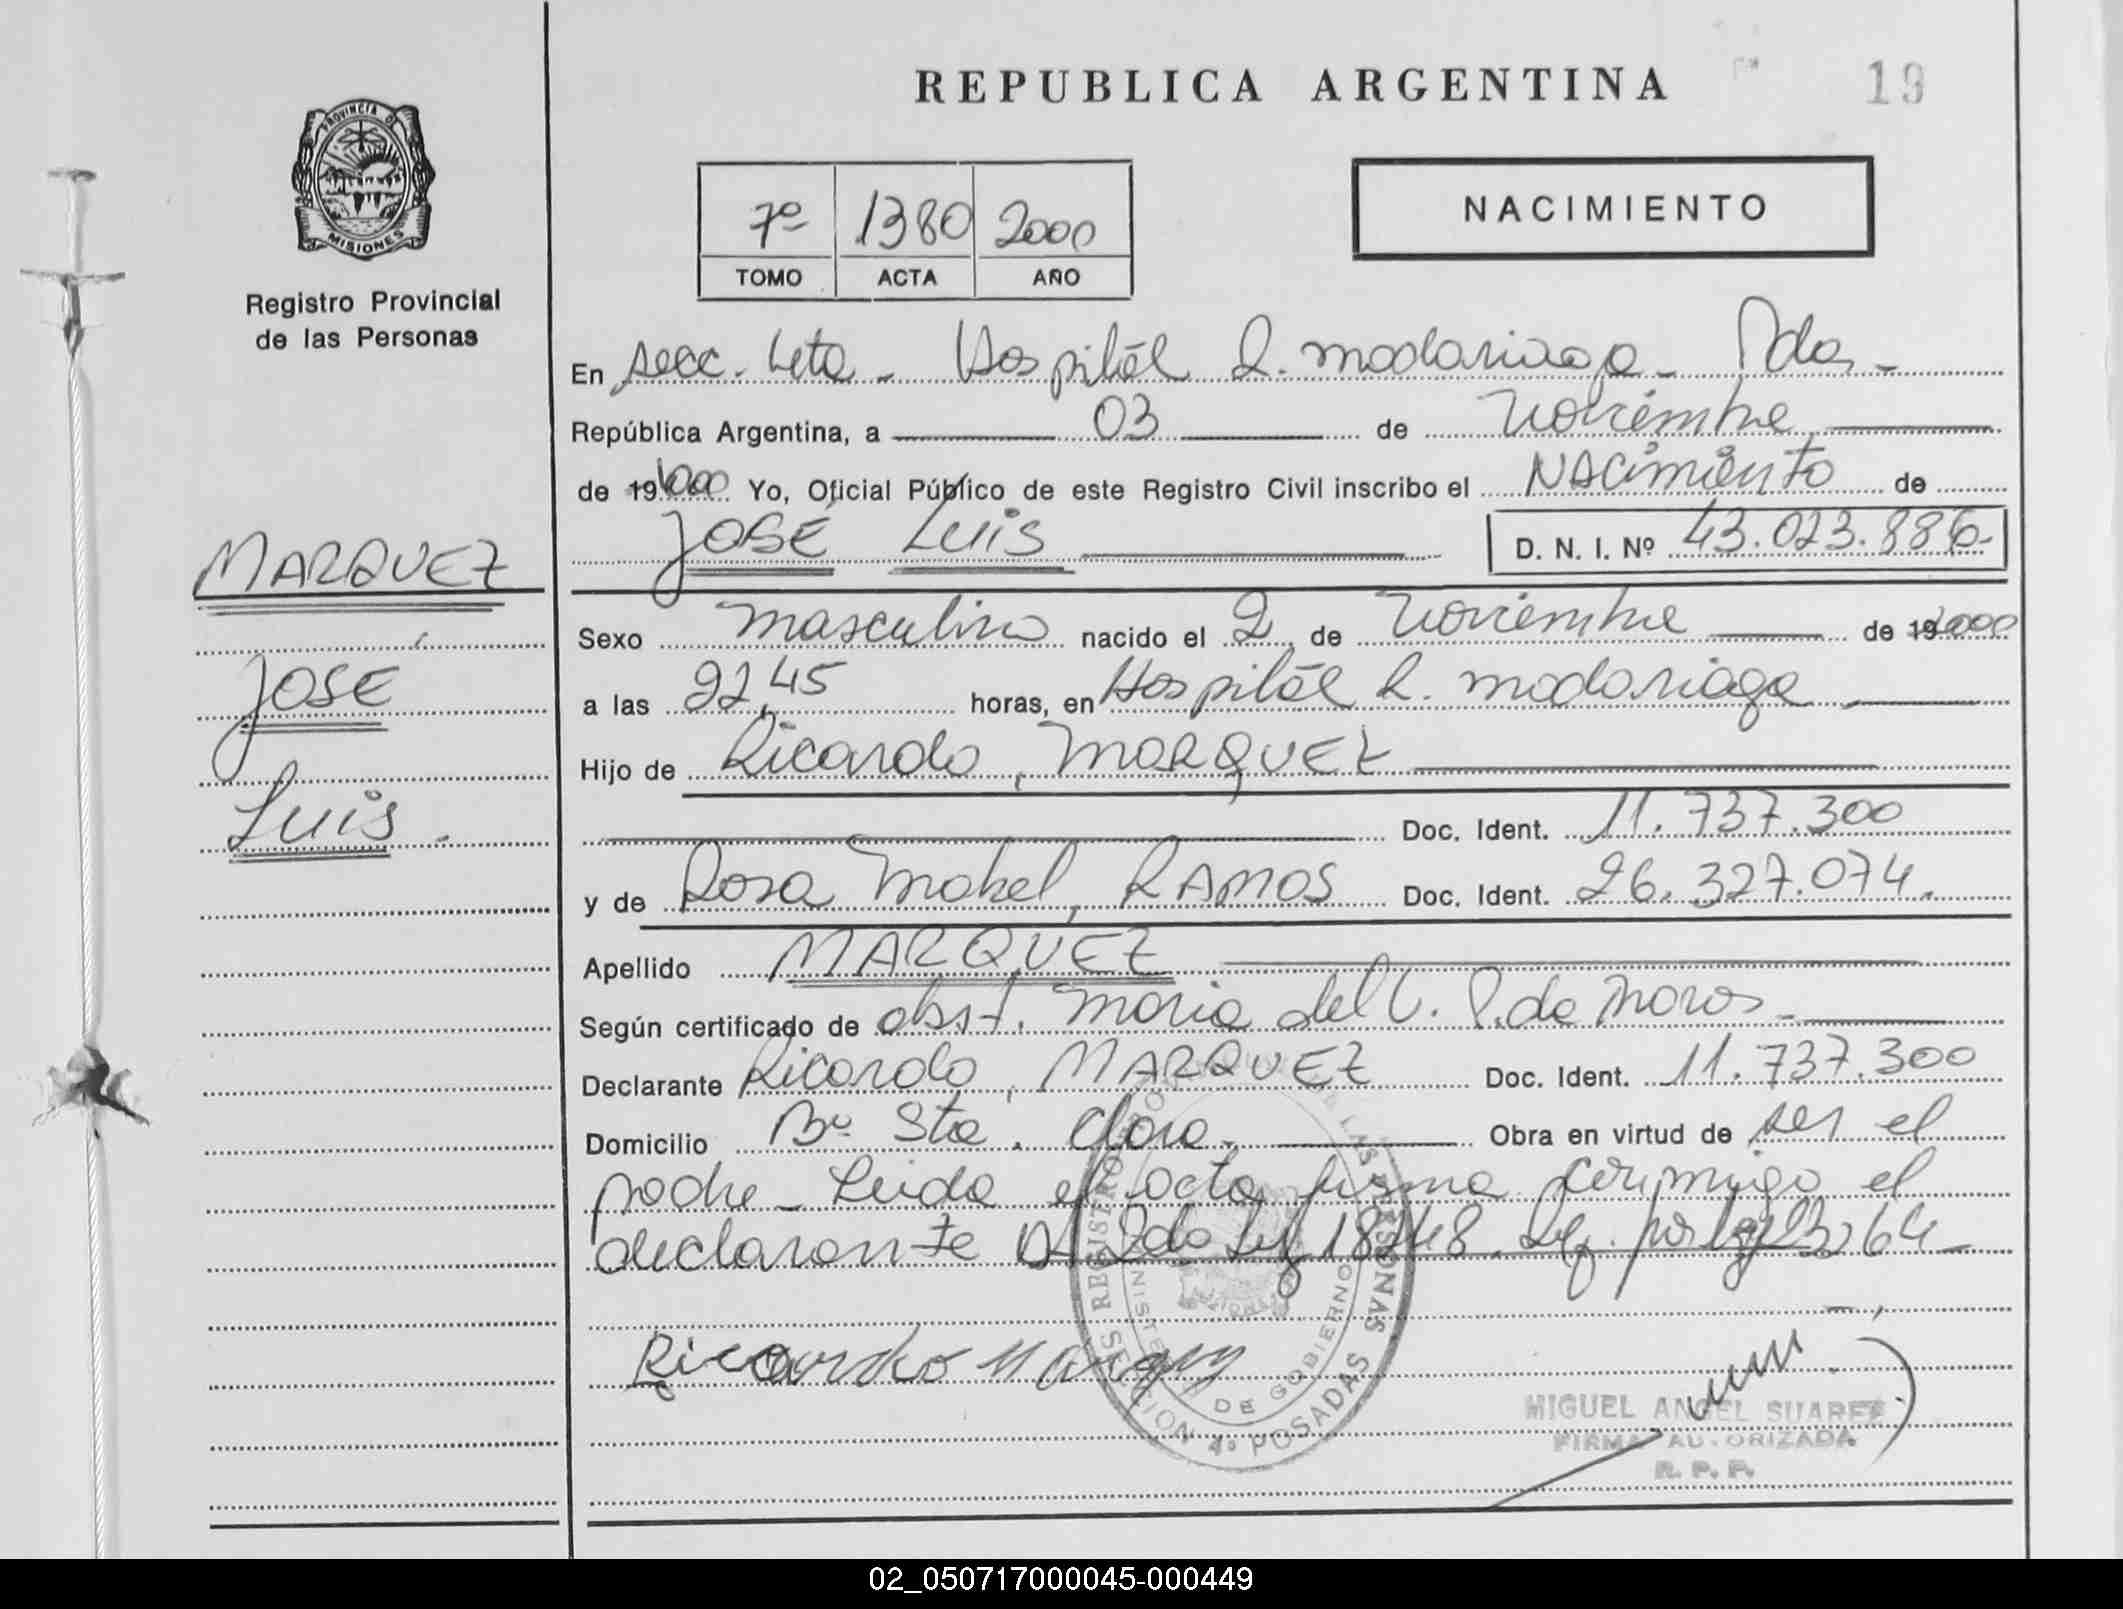 REPUBLICA ARGENTINA
19
PROVINCIA DE
MISIONES
Registro Provincial
de las Personas
7º 1380 2000
TOMO ACTA AÑO
NACIMIENTO
En Secc. 4ta - Hospital R. Madariaga - Pdas -
República Argentina, a 03 de Noviembre
de 19 2000 Yo, Oficial Público de este Registro Civil inscribo el NACimiento de
JOSÉ Luis D. N. I. Nº 43.023.886.-
MARQUEZ
JOSÉ
Luis.
Sexo masculino nacido el 2 de Noviembre de 19 2000
a las 22,45 horas, en Hospital R. Madariaga
Hijo de Ricardo, MARQUEZ
Doc. Ident. 11.737.300
y de Rosa Mabel, RAMOS Doc. Ident. 26.327.074.
Apellido MARQUEZ
Según certificado de obst. Maria del C. P. de Moros -
Declarante Ricardo, MARQUEZ Doc. Ident. 11.737.300
Domicilio Bº Sta. Clara. Obra en virtud de ser el
padre - Leida el acta firma conmigo el
declarante Ley 18248. por ley 23264 -
Ricardo Marquez
REGISTRO DE LAS PERSONAS
MINISTERIO DE GOBIERNO
SECCION 4ª POSADAS
MIGUEL ANGEL SUAREZ
FIRMA AUTORIZADA
R. P. P.
02_050717000045-000449